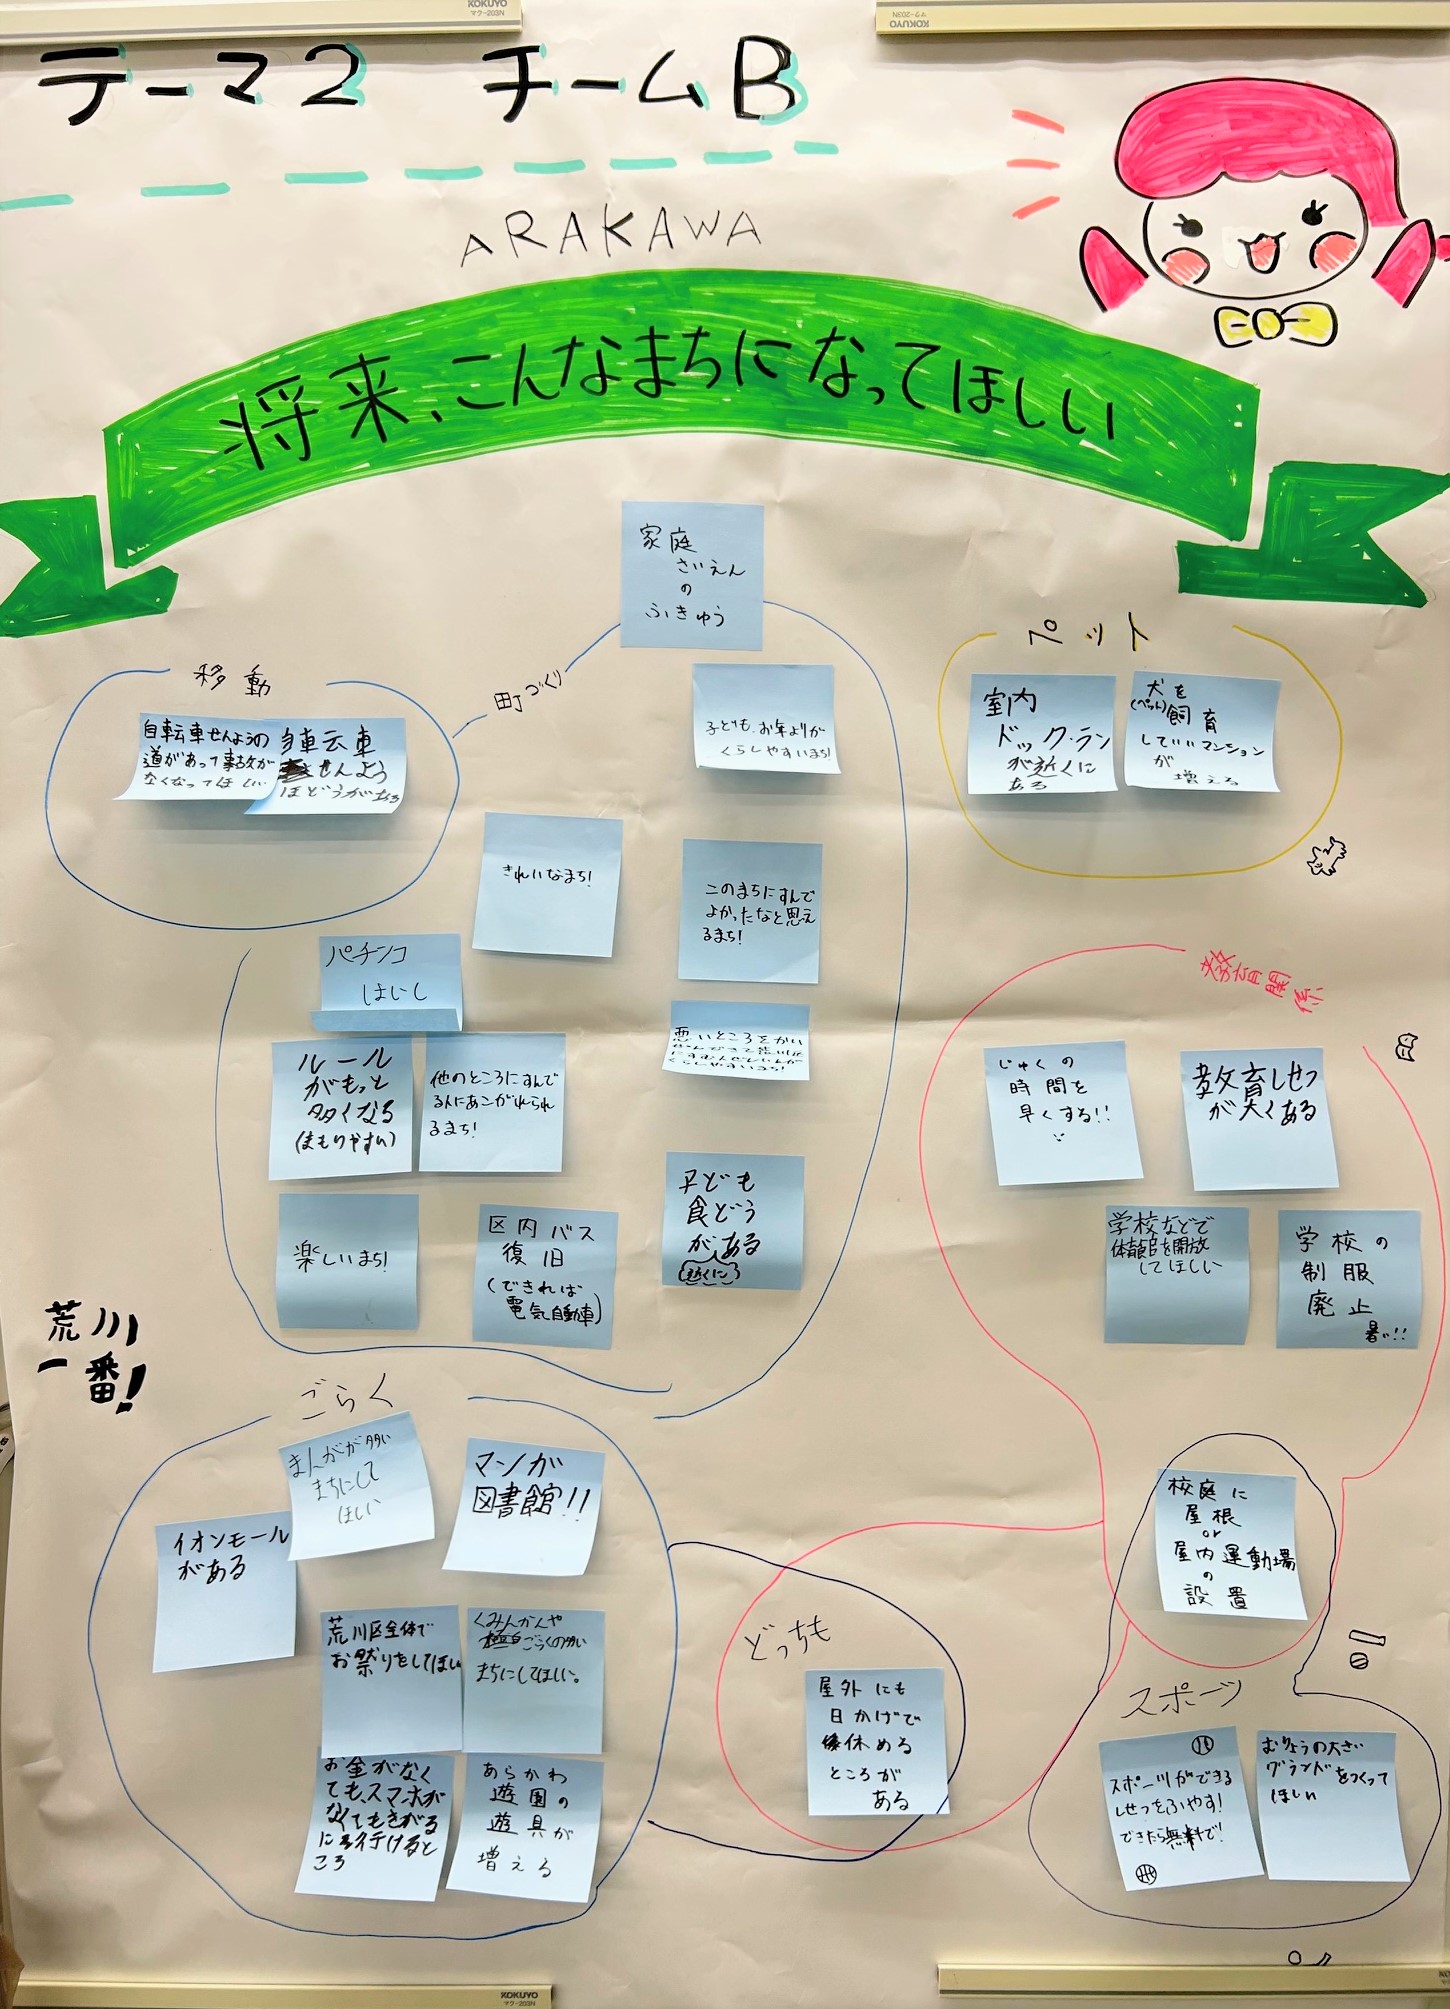 KOKUYO
マク-203N
KOKUYO
マク-203N
テーマ2 チームB
ARAKAWA
将来、こんなまちになってほしい
家庭
さいえん
の
ふきゅう
移動
自転車せんようの
道があって事故が
なくなってほしい
自転車
せんよう
ほどうがある
町づくり
子ども、お年よりが
くらしやすいまち!
きれいなまち!
このまちにすんで
よかったなと思え
るまち!
パチンコ
はいし
ルール
がもっと
多くなる
(まもりやすい)
他のところにすんで
る人にあこがれられ
るまち!
悪いところをかい
くらしやすいまち!
楽しいまち!
区内バス
復旧
(できれば
電気自動車)
子ども
食どう
がある
(近くに)
ペット
室内
ドック・ラン
が近くに
ある
犬を
(ペット)飼育
していいマンション
が
増える
教育関係
じゅくの
時間を
早くする!!
教育しせつ
が大くある
学校などで
体育館を開放
してほしい
学校の
制服
廃止
暑い!!
荒川
一番!
ごらく
まんがが多い
まちにして
ほしい
マンガ
図書館!!
イオンモール
がある
荒川区全体で
お祭りをしてほしい
くみんかんや
ごらくの多い
まちにしてほしい。
お金がなく
ても、スマホが
なくてもきがる
に行けると
ころ
あらかわ
遊園の
遊具が
増える
どっちも
屋外にも
日かげで
休める
ところが
ある
校庭に
屋根
or
屋内運動場
の
設置
スポーツ
スポーツができる
しせつをふやす!
できたら無料で!
むりょうの大きい
グランドをつくって
ほしい
KOKUYO
マク-203N
KOKUYO
マク-203N